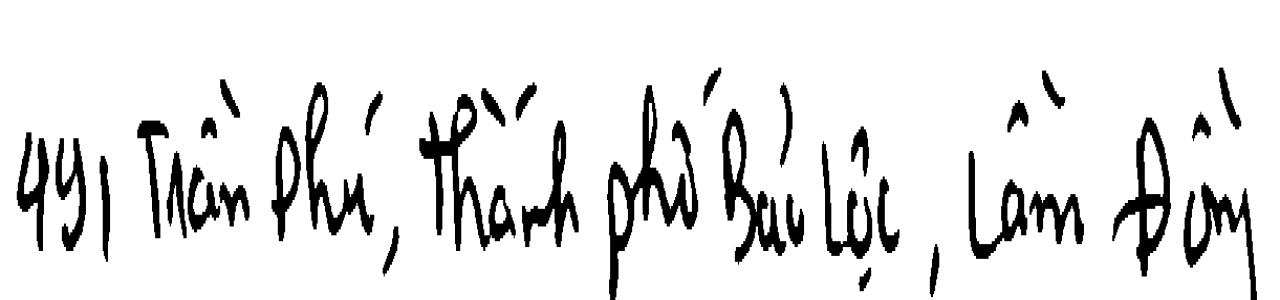 491 Trần Phú, Thành phố Bảo Lộc, Lâm Đồng